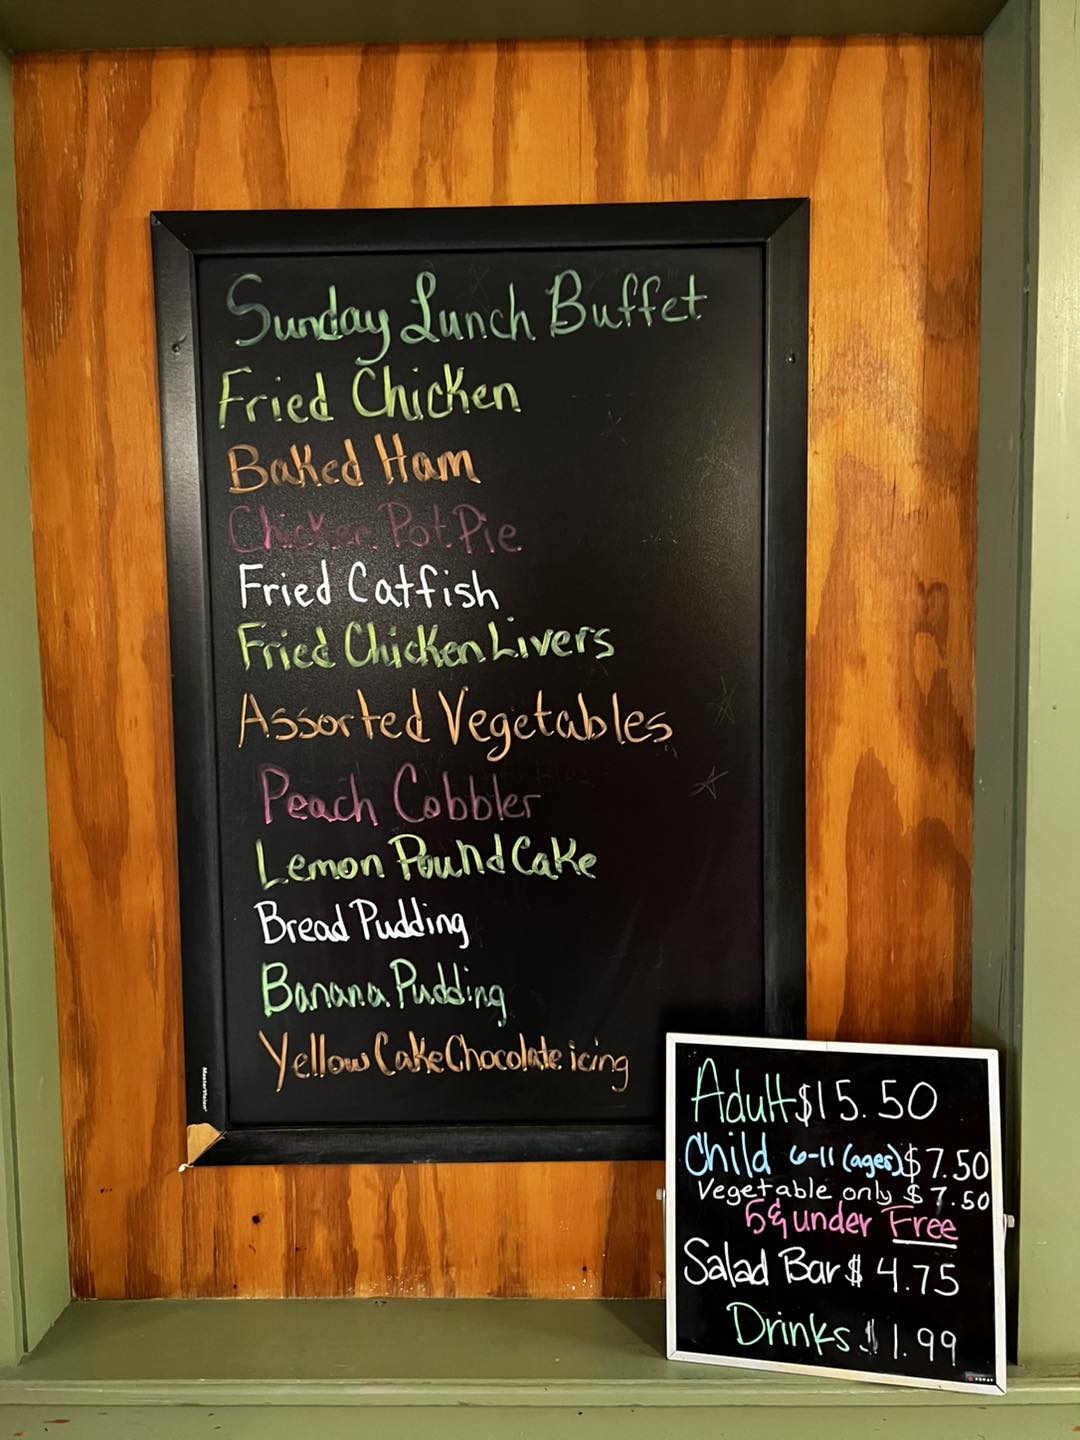 Sunday Lunch Buffet
Fried Chicken
Baked Ham
Chicken Pot Pie
Fried Catfish
Fried Chicken Livers
Assorted Vegetables
Peach Cobbler
Lemon Pound Cake
Bread Pudding
Banana Pudding
Yellow Cake Chocolate icing
MasterVision
Adult $15.50
Child 6-11 (ages) $7.50
Vegetable only $7.50
5 & under Free
Salad Bar $4.75
Drinks $1.99